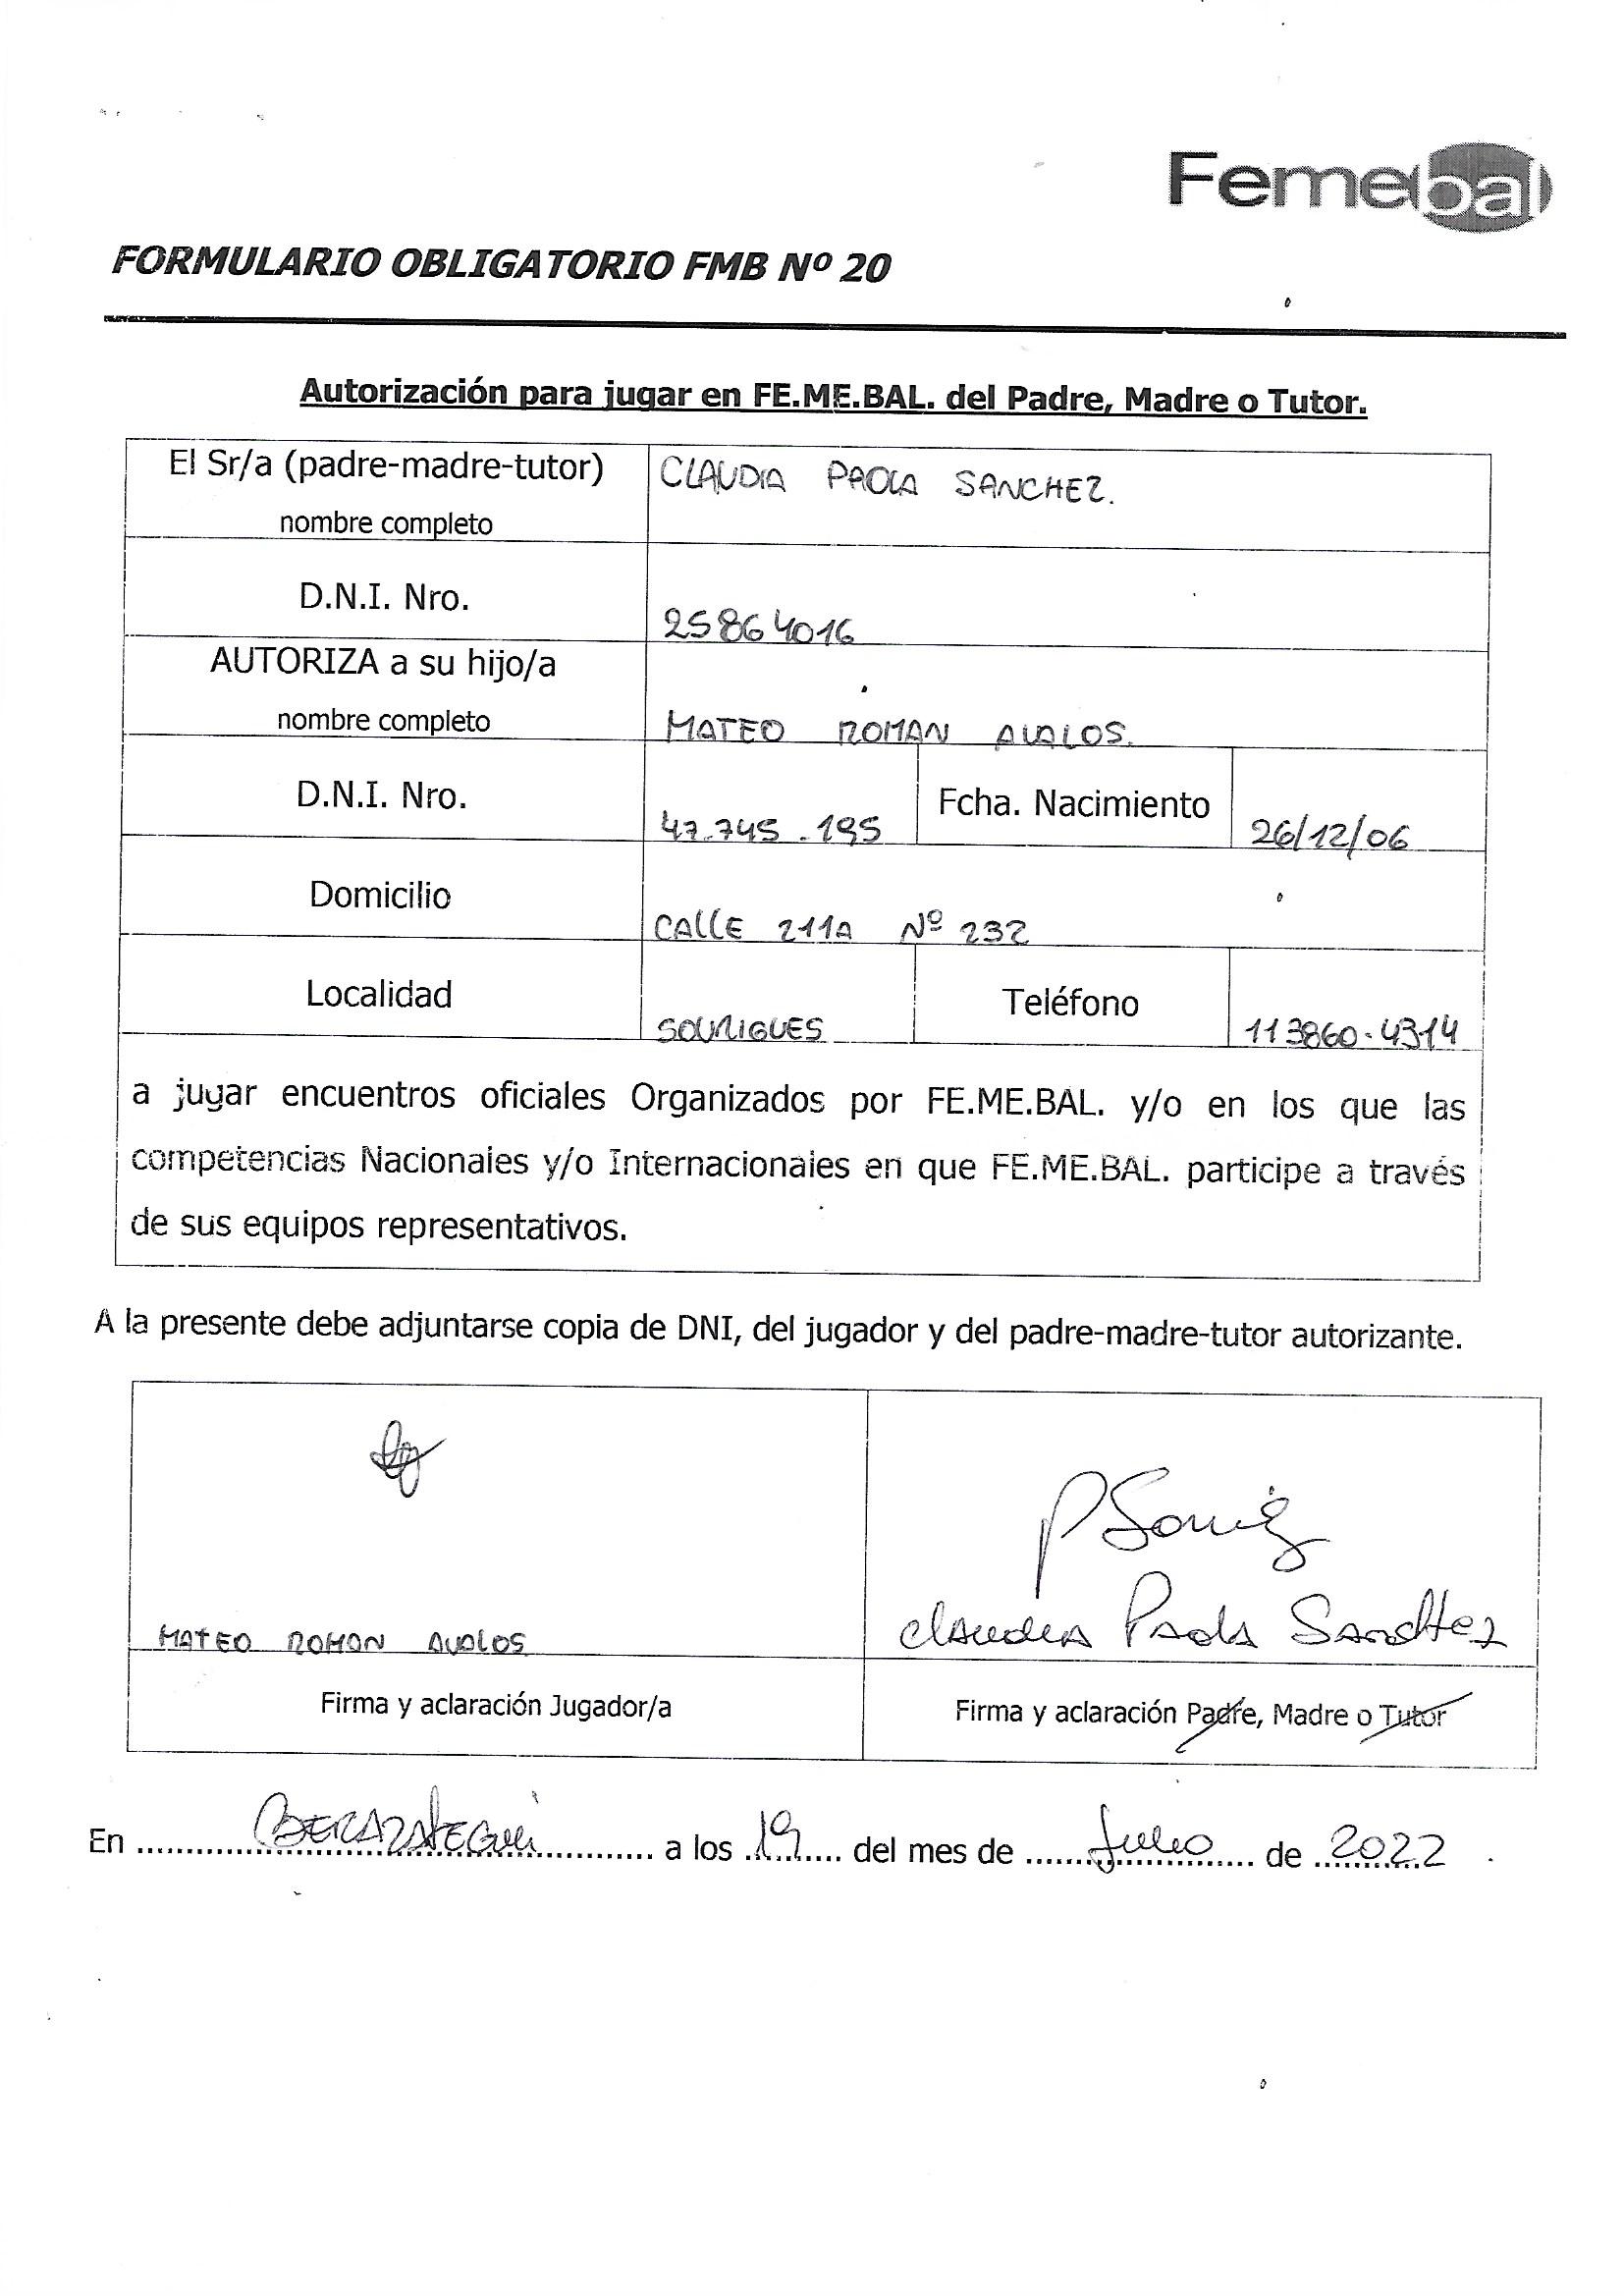 Femebal
FORMULARIO OBLIGATORIO FMB Nº 20
Autorización para jugar en FE.ME.BAL. del Padre, Madre o Tutor.
El Sr/a (padre-madre-tutor) CLAUDIA PAOLA SANCHEZ.
nombre completo
D.N.I. Nro. 25864016
AUTORIZA a su hijo/a
nombre completo MATEO ROMAN AVALOS.
D.N.I. Nro. 47.745.195 Fcha. Nacimiento 26/12/06
Domicilio CALLE 211A Nº 232
Localidad SOURIGUES Teléfono 113860-4314
a jugar encuentros oficiales Organizados por FE.ME.BAL. y/o en los que las
competencias Nacionales y/o Internacionales en que FE.ME.BAL. participe a través
de sus equipos representativos.
A la presente debe adjuntarse copia de DNI, del jugador y del padre-madre-tutor autorizante.
MATEO ROMAN AVALOS Claudia Paola Sanchez
Firma y aclaración Jugador/a Firma y aclaración Padre, Madre o Tutor
En BERAZATEGUI a los 19 del mes de Julio de 2022